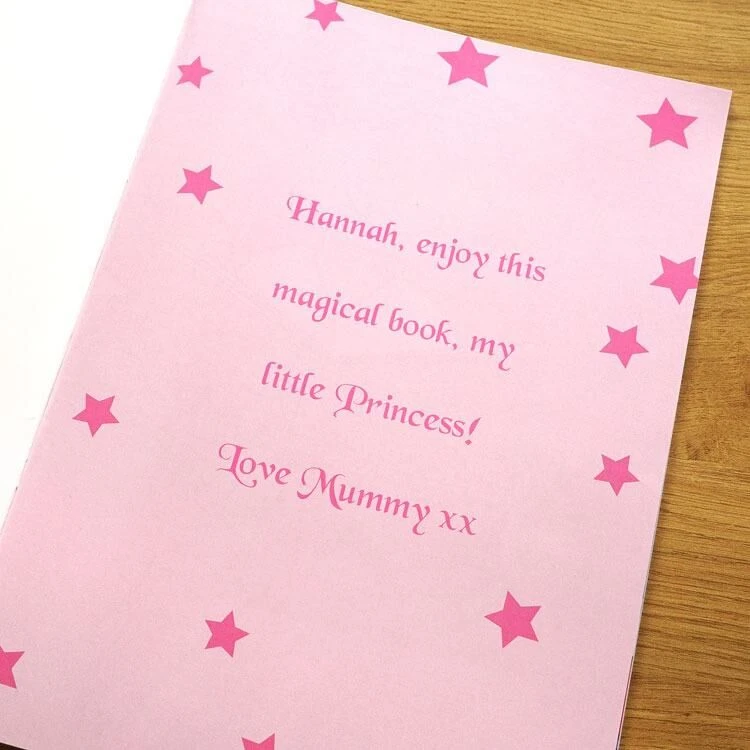 Hannah, enjoy this
magical book, my
little Princess!
Love Mummy xx